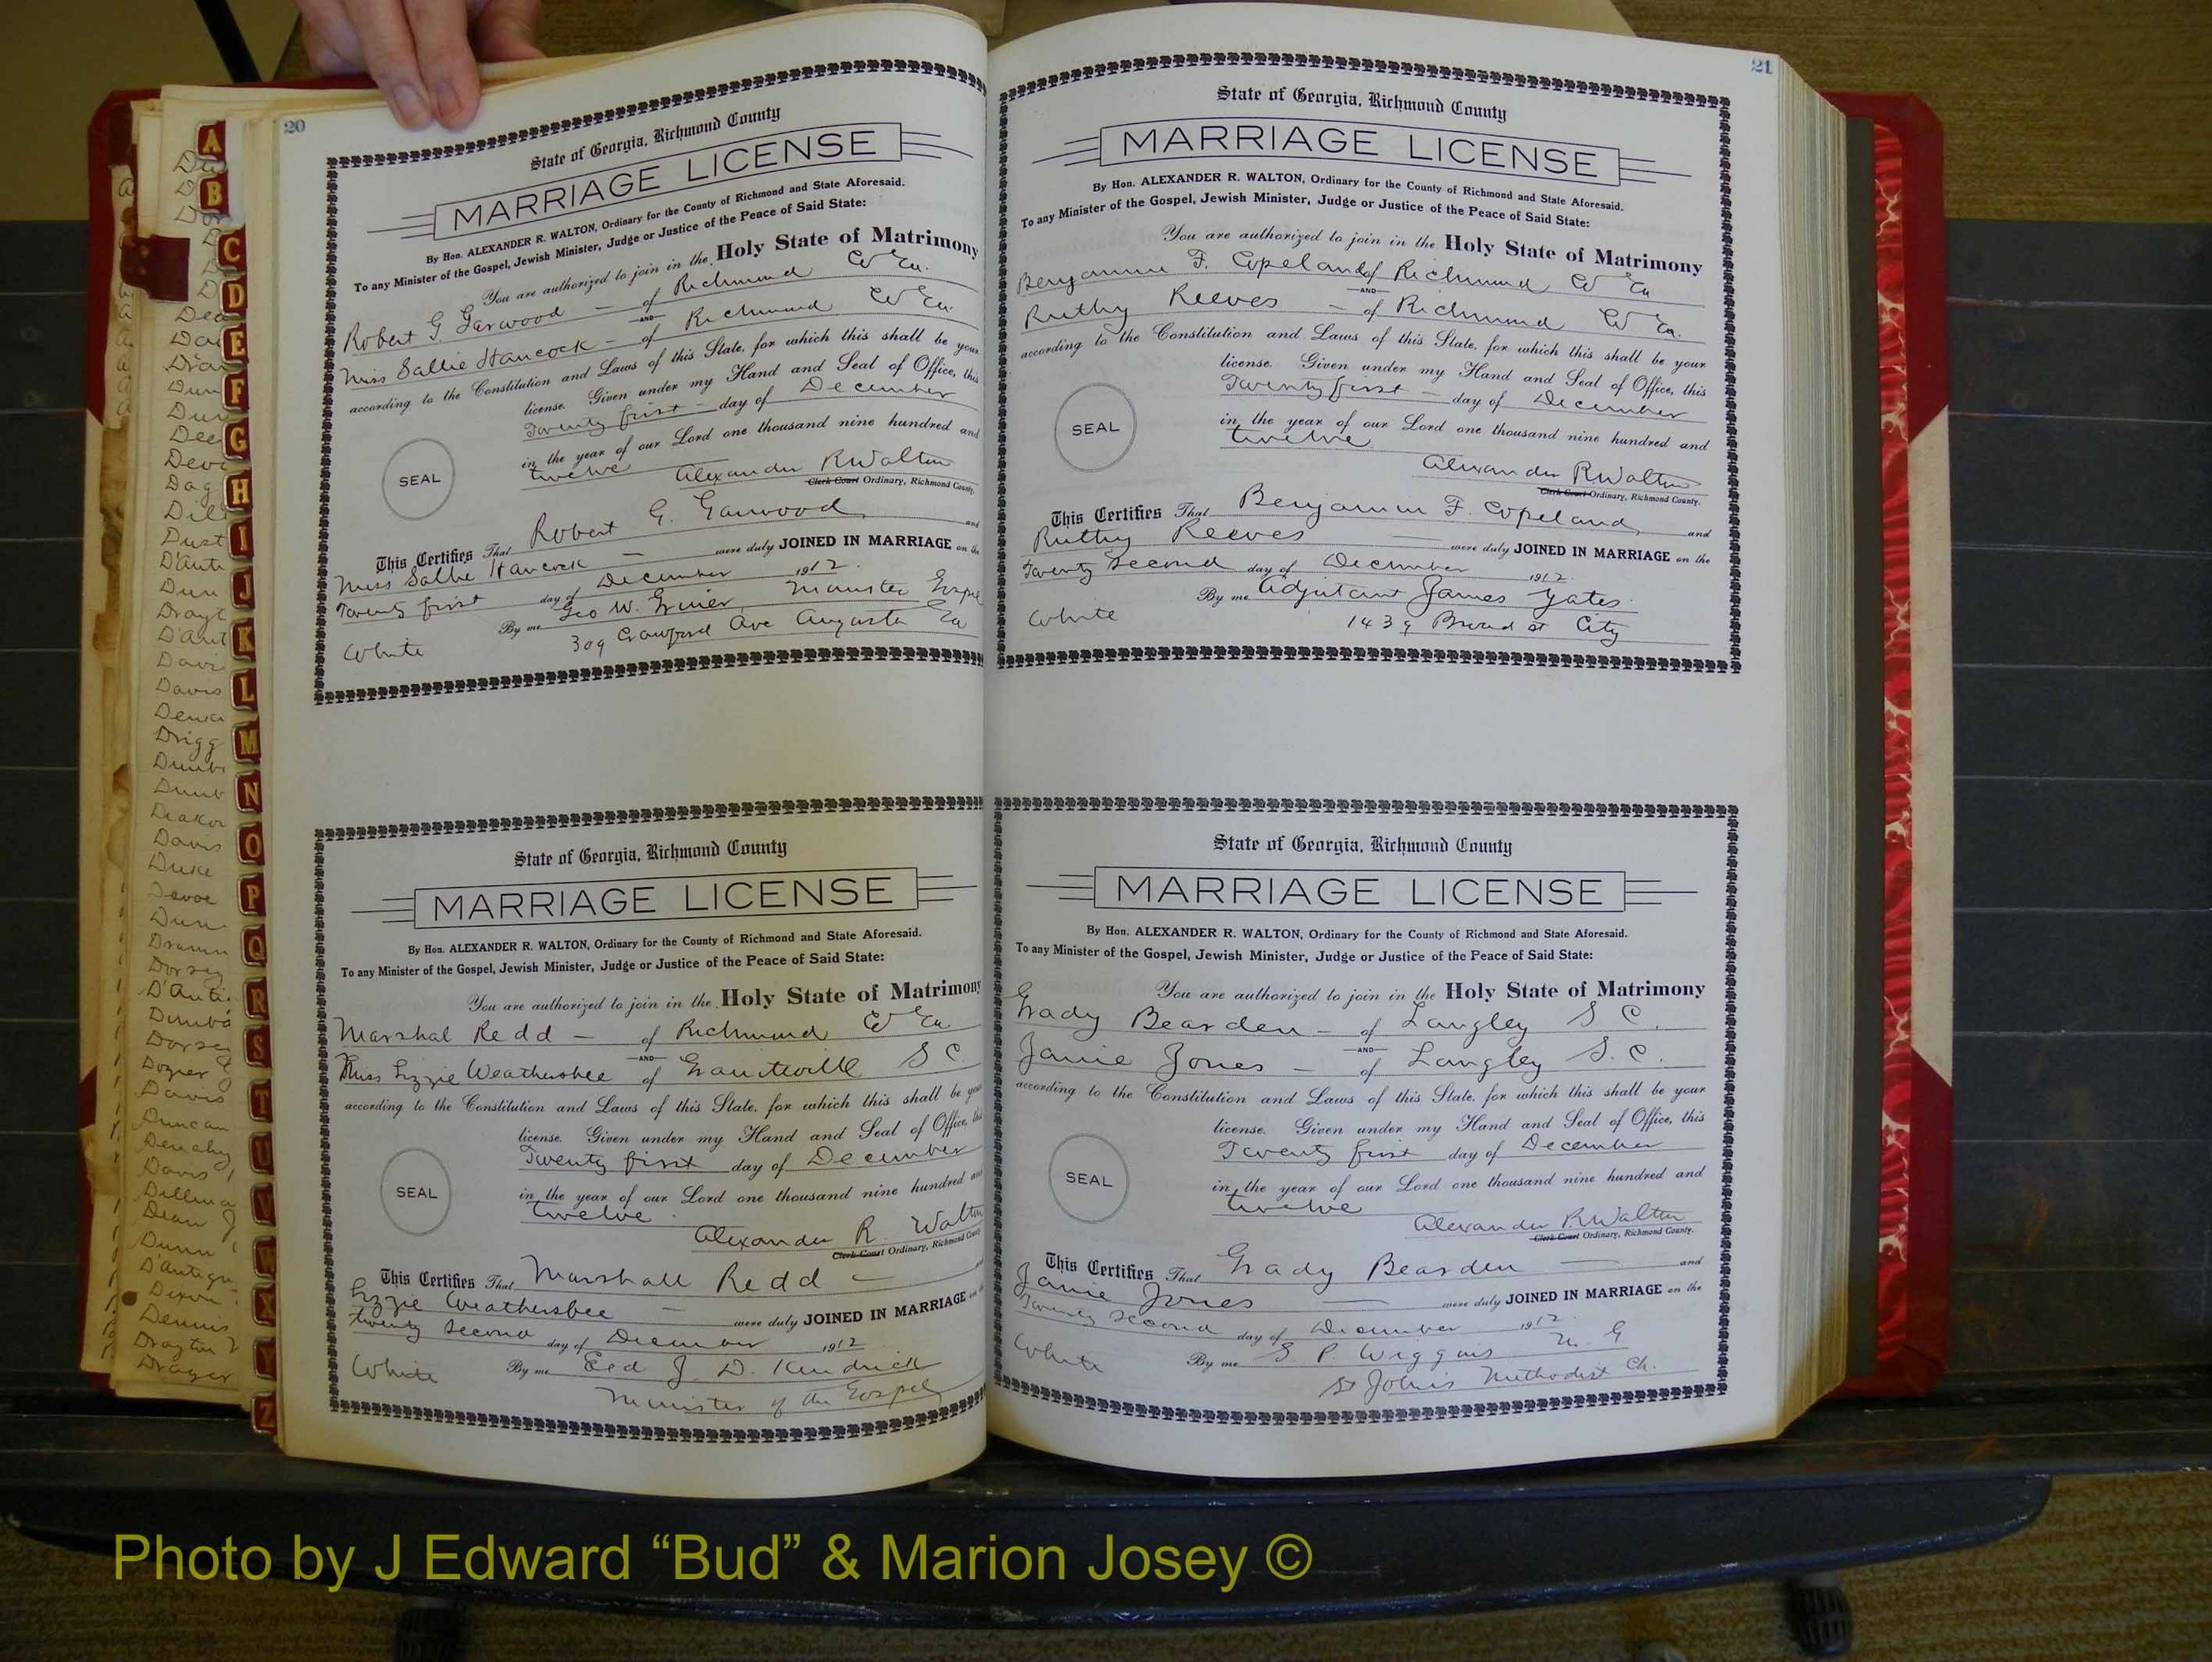 20
State of Georgia, Richmond County
MARRIAGE LICENSE
By Hon. ALEXANDER R. WALTON, Ordinary for the County of Richmond and State Aforesaid.
To any Minister of the Gospel, Jewish Minister, Judge or Justice of the Peace of Said State:
You are authorized to join in the Holy State of Matrimony
Robert G Garwood — of Richmond Co Ga.
AND
Miss Sallie Hancock — of Richmond Co Ga.
according to the Constitution and Laws of this State, for which this shall be your
license. Given under my Hand and Seal of Office, this
Twenty first — day of December
in the year of our Lord one thousand nine hundred and
twelve
Alexander R Walton
SEAL
Clerk Court Ordinary, Richmond County.
This Certifies That Robert G. Garwood and
Miss Sallie Hancock — were duly JOINED IN MARRIAGE on the
Twenty first day of December 1912.
By me Geo W. Minister Gospel
White 309 Crawford Ave Augusta Ga
State of Georgia, Richmond County
MARRIAGE LICENSE
By Hon. ALEXANDER R. WALTON, Ordinary for the County of Richmond and State Aforesaid.
To any Minister of the Gospel, Jewish Minister, Judge or Justice of the Peace of Said State:
You are authorized to join in the Holy State of Matrimony
Marshal Redd — of Richmond Co Ga
AND
Miss Lizzie Weathersbee of Graniteville S C.
according to the Constitution and Laws of this State, for which this shall be your
license. Given under my Hand and Seal of Office, this
Twenty first day of December
in the year of our Lord one thousand nine hundred and
twelve
SEAL
Alexander R. Walton
Clerk Court Ordinary, Richmond County
This Certifies That Marshall Redd —
Lizzie Weathersbee — were duly JOINED IN MARRIAGE on the
twenty second day of December 1912
White By me Eld J. D. Kendrick
Minister of the Gospel
21
State of Georgia, Richmond County
MARRIAGE LICENSE
By Hon. ALEXANDER R. WALTON, Ordinary for the County of Richmond and State Aforesaid.
To any Minister of the Gospel, Jewish Minister, Judge or Justice of the Peace of Said State:
You are authorized to join in the Holy State of Matrimony
Benjamin F. Copeland of Richmond Co Ga
AND
Ruthy Reeves — of Richmond Co Ga.
according to the Constitution and Laws of this State, for which this shall be your
license. Given under my Hand and Seal of Office, this
Twenty first — day of December
in the year of our Lord one thousand nine hundred and
twelve
SEAL
Alexander R Walton
Clerk Court Ordinary, Richmond County.
This Certifies That Benjamin F. Copeland, and
Ruthy Reeves — were duly JOINED IN MARRIAGE on the
Twenty Second day of December 1912.
By me Adjutant James Yates
White 1439 Broad st City
State of Georgia, Richmond County
MARRIAGE LICENSE
By Hon. ALEXANDER R. WALTON, Ordinary for the County of Richmond and State Aforesaid.
To any Minister of the Gospel, Jewish Minister, Judge or Justice of the Peace of Said State:
You are authorized to join in the Holy State of Matrimony
Grady Bearden — of Langley S C.
AND
Janie Jones — of Langley S. C.
according to the Constitution and Laws of this State, for which this shall be your
license. Given under my Hand and Seal of Office, this
Twenty first day of December
in the year of our Lord one thousand nine hundred and
twelve
SEAL
Alexander R. Walton
Clerk Court Ordinary, Richmond County.
This Certifies That Grady Bearden — and
Janie Jones — were duly JOINED IN MARRIAGE on the
Twenty second day of December 1912
White By me S. P. Wiggins M. G
St John's Methodist Ch.
A
B
C
D
E
F
G
H
I
J
K
L
M
N
O
P
Q
R
S
T
U
V
W
X
Y
Z
Photo by J Edward “Bud” & Marion Josey ©